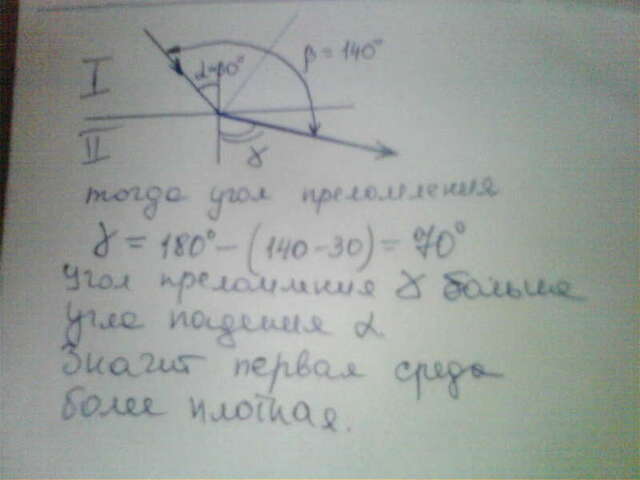 I
α=30°
β = 140°
II
γ
тогда угол преломления
γ = 180° - (140-30) = 70°
Угол преломления γ больше
угла падения α
Значит первая среда
более плотная.